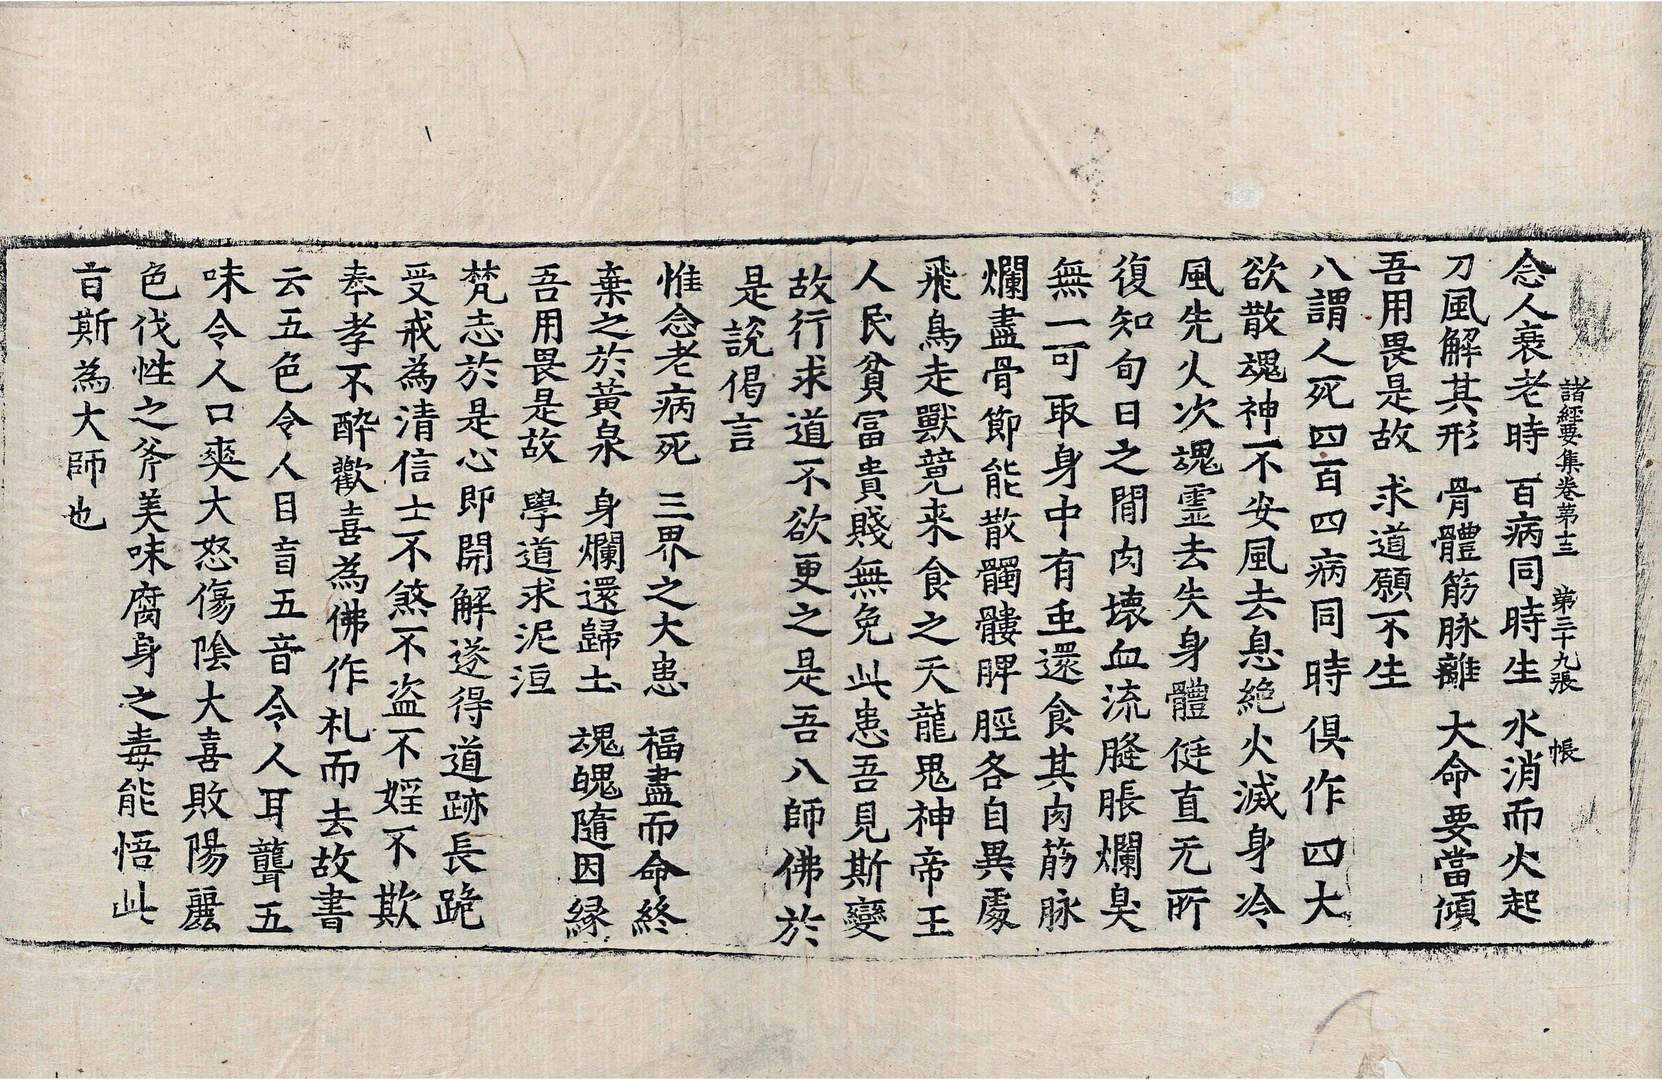 諸經要集卷第十三　第三十九張　帳
念人衰老時　百病同時生　水消而火起
刀風解其形　骨體筋脉離　大命要當傾
吾用畏是故　求道願不生
八謂人死四百四病同時俱作四大
欲散魂神不安風去息絶火滅身冷
風先火次魂靈去失身體侹直无所
復知旬日之間肉壞血流膖脹爛臭
無一可取身中有虫還食其肉筋脉
爛盡骨節能散髑髏髀脛各自異處
飛鳥走獸競来食之天龍鬼神帝王
人民貧冨貴賤無免此患吾見斯變
故行求道不欲更之是吾八師佛於
是説偈言
惟念老病死　三界之大患　福盡而命終
棄之於黃泉　身爛還歸土　魂魄隨因縁
吾用畏是故　學道求泥洹
梵志於是心即開解遂得道跡長跪
受戒為清信士不煞不盗不婬不欺
奉孝不酔歡喜為佛作礼而去故書
云五色令人目盲五音令人耳聾五
味令人口爽大怒傷陰大喜敗陽麗
色伐性之斧美味腐身之毒能悟此
盲斯為大師也